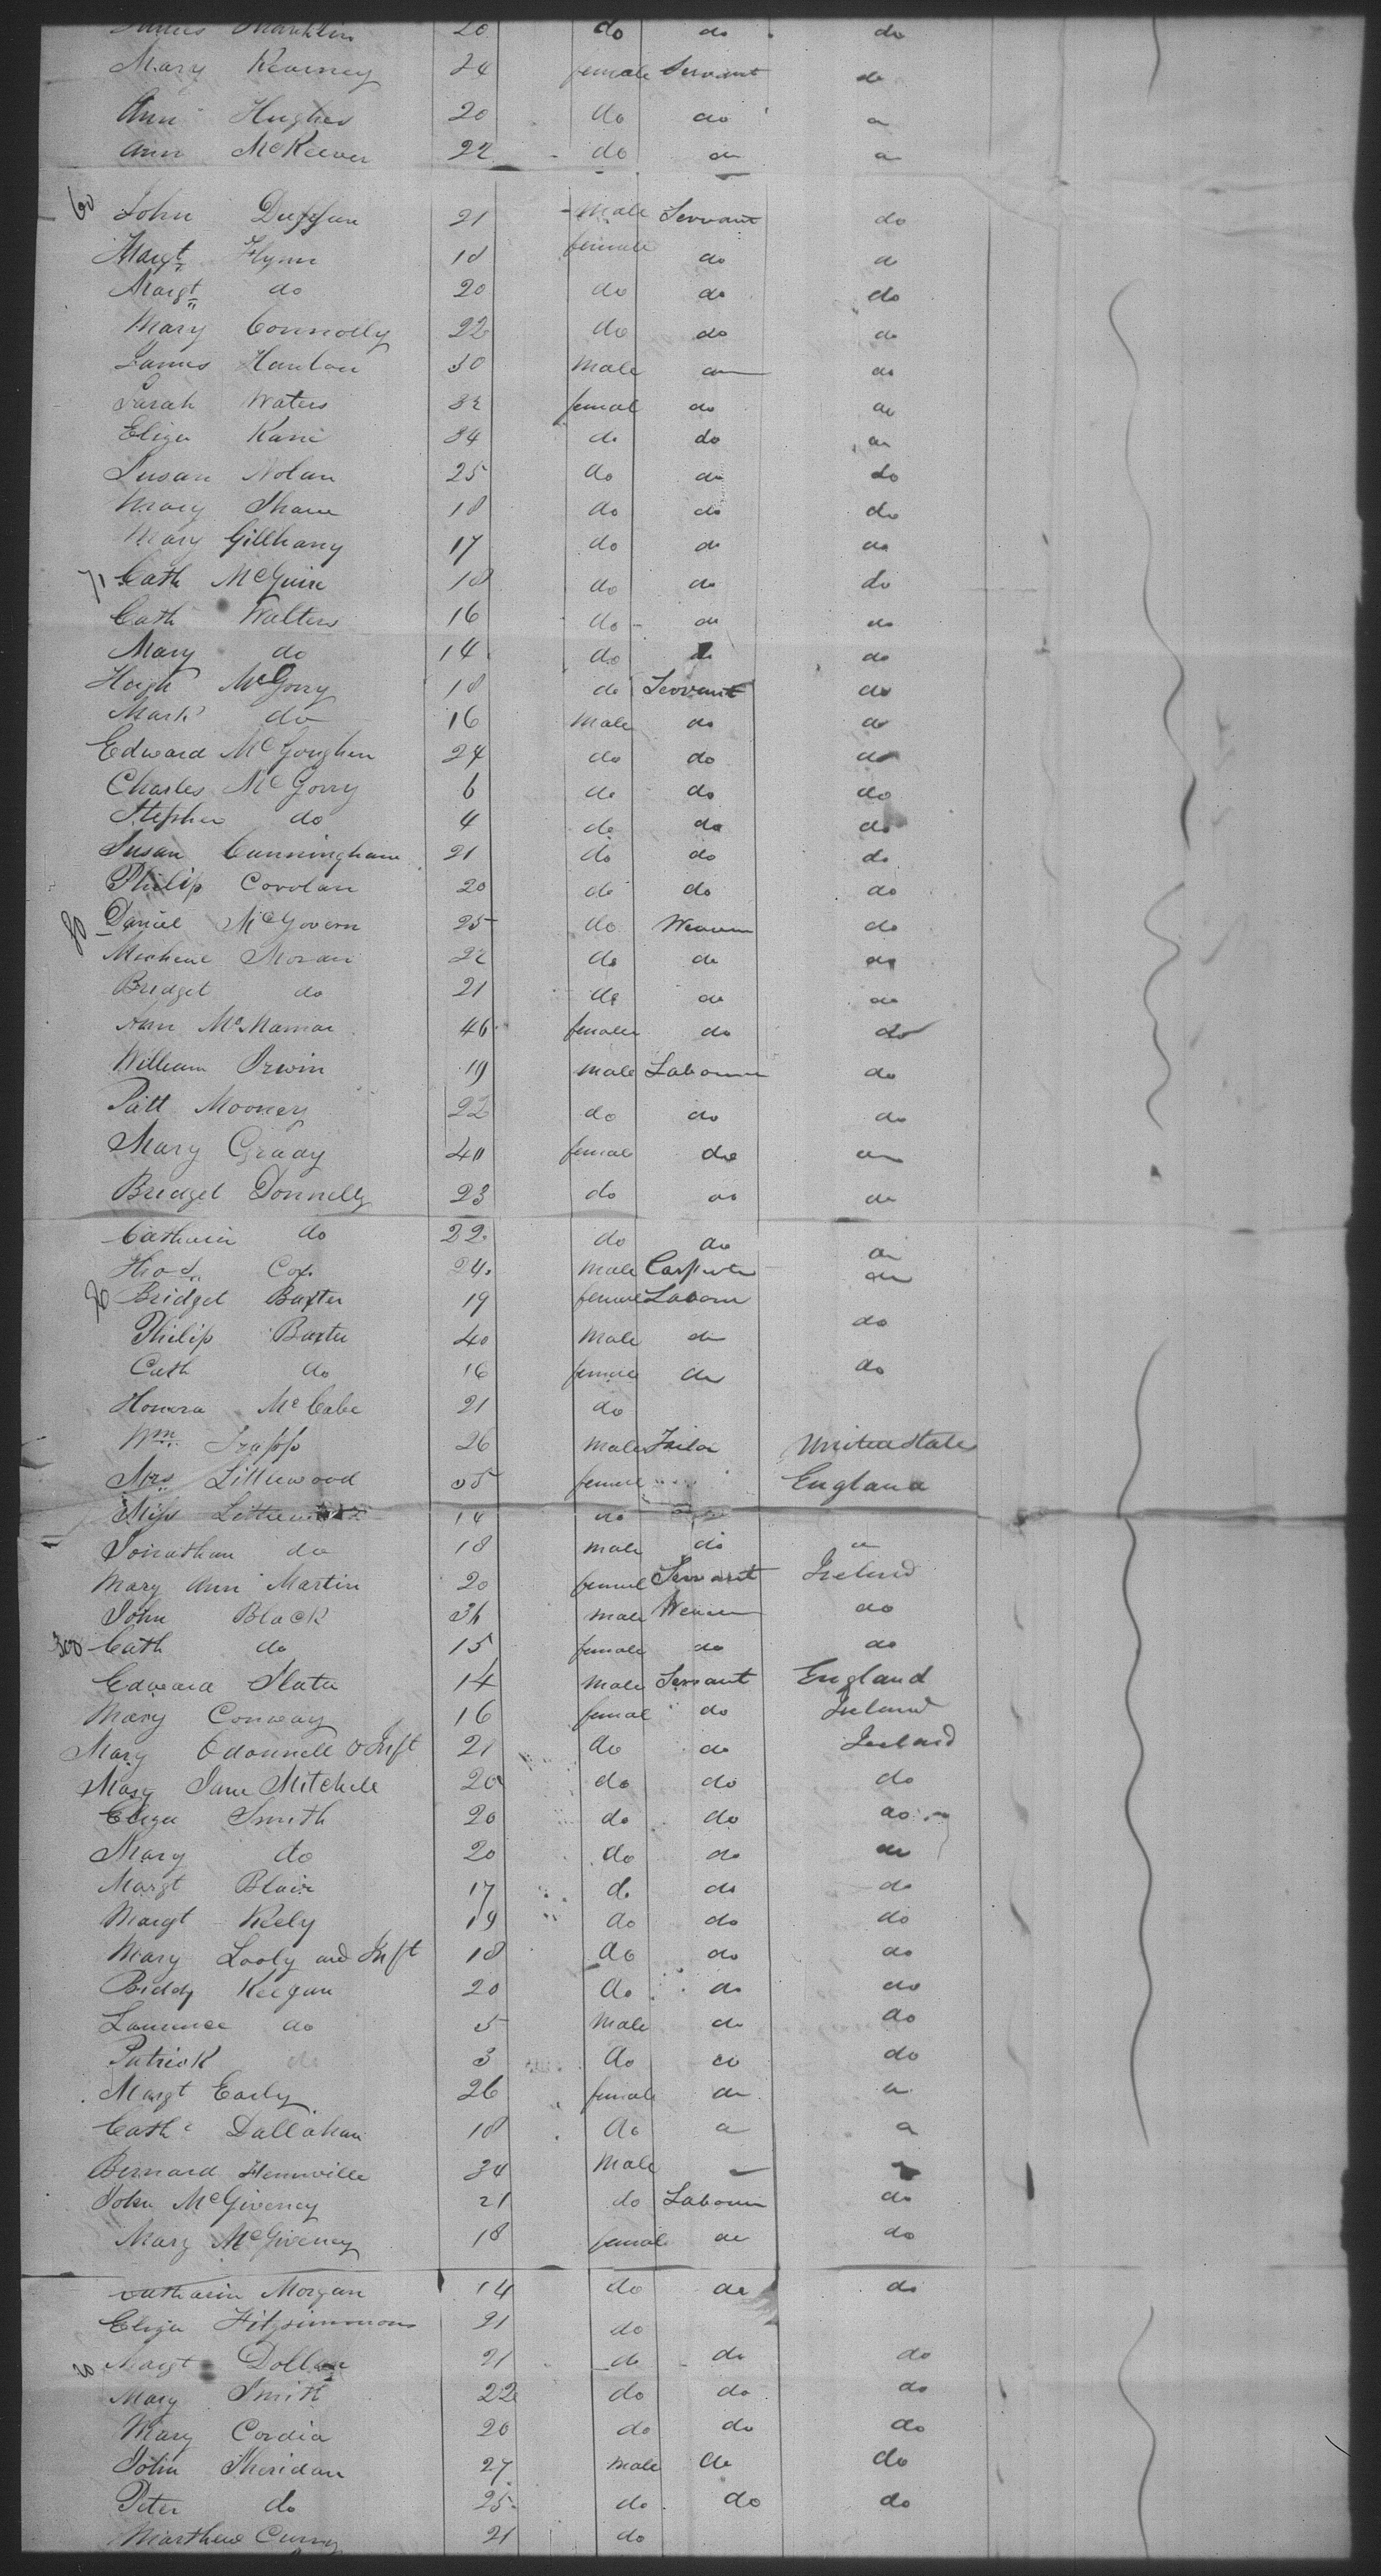 James Franklin 20 do do do
Mary Kearney 24 female Servant do
Ann Hughes 20 do do do
Ann McKeever 22 do do do
60 John Duffan 21 Male Servant do
Margt Flynn 18 female do do
Margt do 20 do do do
Mary Connolly 22 do do do
James Hanlon 30 Male do do
Sarah Waters 32 femal do do
Eliza Kane 34 do do do
Susan Nolan 25 do do do
Mary Shane 18 do do do
Mary Gillhany 17 do do do
71 Cath McGuire 18 do do do
Cath Walters 16 do do do
Mary do 14 do do do
Hugh McGorry 18 do Servant do
Mark do 16 Male do do
Edward McGoughen 24 do do do
Charles McGorry 6 do do do
Stephen do 4 do do do
Susan Cunningham 21 do do do
Philip Corolan 20 do do do
80 Daniel McGovern 25 do Weaver do
Micheal Moran 22 do do do
Bridget do 21 do do do
Ann McNamar 46 female do do
William Irwin 19 male Labourer do
Patt Mooney 22 do do do
Mary Grady 40 femal do do
Bridget Donnelly 23 do do do
Catharin do 22 do do do
Thos Cox 24 Male Carpenter do
90 Bridget Baxter 19 female Labour
Philip Baxter 40 Male do do
Cath do 16 female do do
Honora McCabe 21 do
Wm Trapp 26 Male Tailor United States
Mrs Littlewood 35 female England
Miss Littlewood 14 do
Jonathan do 18 male do do
Mary Ann Martin 20 femal Servant Ireland
John Black 36 male Weaver do
300 Cath do 15 female do do
Edward Slater 14 Male Servant England
Mary Conway 16 femal do Ireland
Mary Odonnell & Inft 21 do do Ireland
Mary Jane Mitchell 20 do do do
Eliza Smith 20 do do do
Mary do 20 do do do
Margt Blair 17 do do do
Margt Kiely 19 do do do
Mary Looly and Inft 18 do do do
Biddy Keegan 20 do do do
Laurence do 5 Male do do
Patrick do 3 do do do
Margt Early 26 female do do
Cath Dallahan 18 do do do
Bernard Hennville 34 Male
John McGiveney 21 do Labourer do
Mary McGiveney 18 female do do
Catharin Morgan 14 do do do
Eliza Fitzsimmons 21 do
20 Margt Dollan 21 do do do
Mary Smith 22 do do do
Mary Cordia 20 do do do
John Sheridan 27 male do do
Peter do 25 do do do
Marthew Curry 21 do